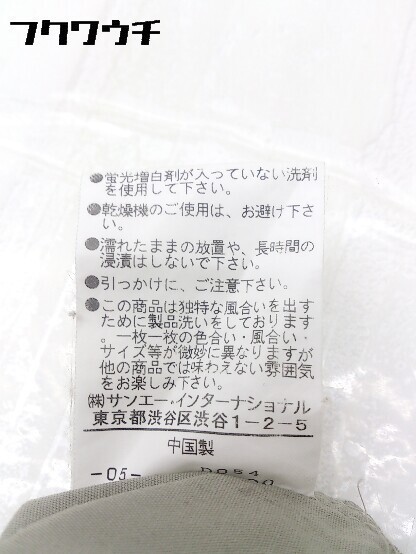 フクワウチ
●蛍光増白剤が入っていない洗剤
を使用して下さい。
●乾燥機のご使用は、お避け下さ
い。
●濡れたままの放置や、長時間の
浸漬はしないで下さい。
●引っかけに、ご注意下さい。
●この商品は独特な風合いを出す
ために製品洗いをしております
。一枚一枚の色合い・風合い・
サイズ等が微妙に異なりますが
他の商品では味わえない雰囲気
をお楽しみ下さい。
㈱サンエー・インターナショナル
東京都渋谷区渋谷1-2-5
中国製
-05-